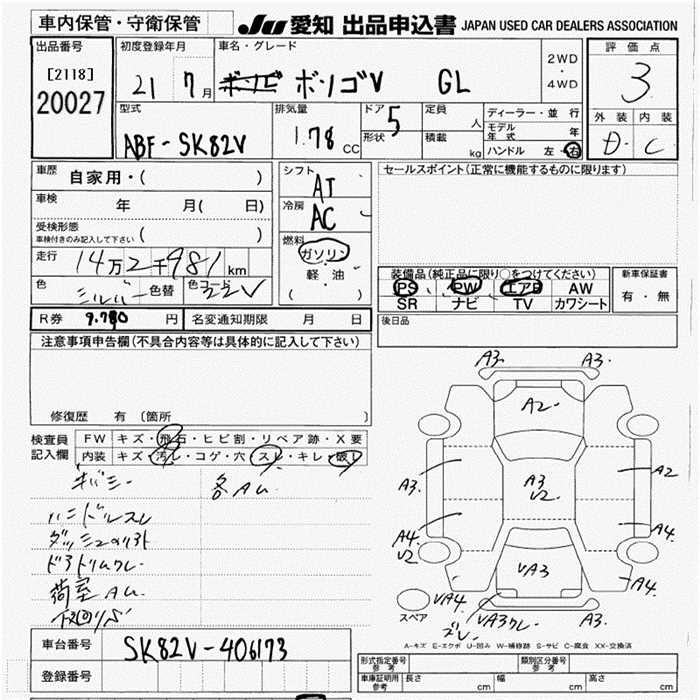 車内保管・守衛保管
JU 愛知 出品申込書 JAPAN USED CAR DEALERS ASSOCIATION
出品番号
[2118]
20027
初度登録年月
21 7月
車名・グレード
ボンゴV GL
2WD
・
4WD
評価点
3
外装 内装
D・ C
型式
ABF-SK82V
排気量
1.78 CC
ドア 5
形状
定員 人
積載 kg
ディーラー・並行
モデル年式 年
ハンドル 左・右
車歴
自家用・( )
車検 年 月( 日)
受検形態
車検付きのみ記入して下さい ( )
走行
14万2千981 km
色 シルバー 色替 色コード 22V
シフト
AT
冷房
AC
燃料
ガソリン
軽・油
( )
セールスポイント(正常に機能するものに限ります)
装備品(純正品に限り○をつけてください)
PS PW エアB AW
SR ナビ TV カワシート
新車保証書
有・無
後日品
R券 9.780 円 名変通知期限 月 日
注意事項申告欄(不具合内容等は具体的に記入して下さい)
修復歴 有 〔箇所 〕
検査員
記入欄
FW キズ・飛石・ヒビ割・リペア跡・X要
内装 キズ・汚レ・コゲ・穴・スレ・キレ・破レ
各AU
ハンドルスレ
荷室AU
下回リS
A3. A3.
A2
A3. A3 U2 A2
A4. U2 A4
VA3
VA4. A4.
スペア
ズレ VA3ワレ A3.
A-キズ E-エクボ U-凹み W-補修跡 S-サビ C-腐食 XX-交換済
車台番号
SK82V-406173
登録番号
形式指定番号 参考
類別区分番号 参考
車庫証明用 参考 長さ cm 幅 cm 高さ cm